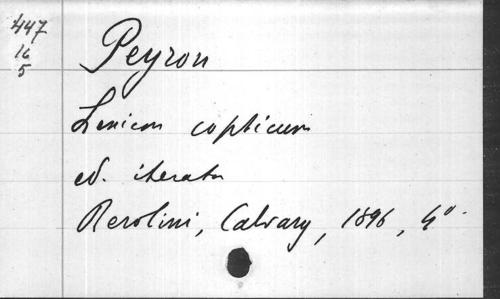 447
16
5
Peyron
Lexicon copticum
ed. iterata
Berolini, Calvary, 1896, 4°.